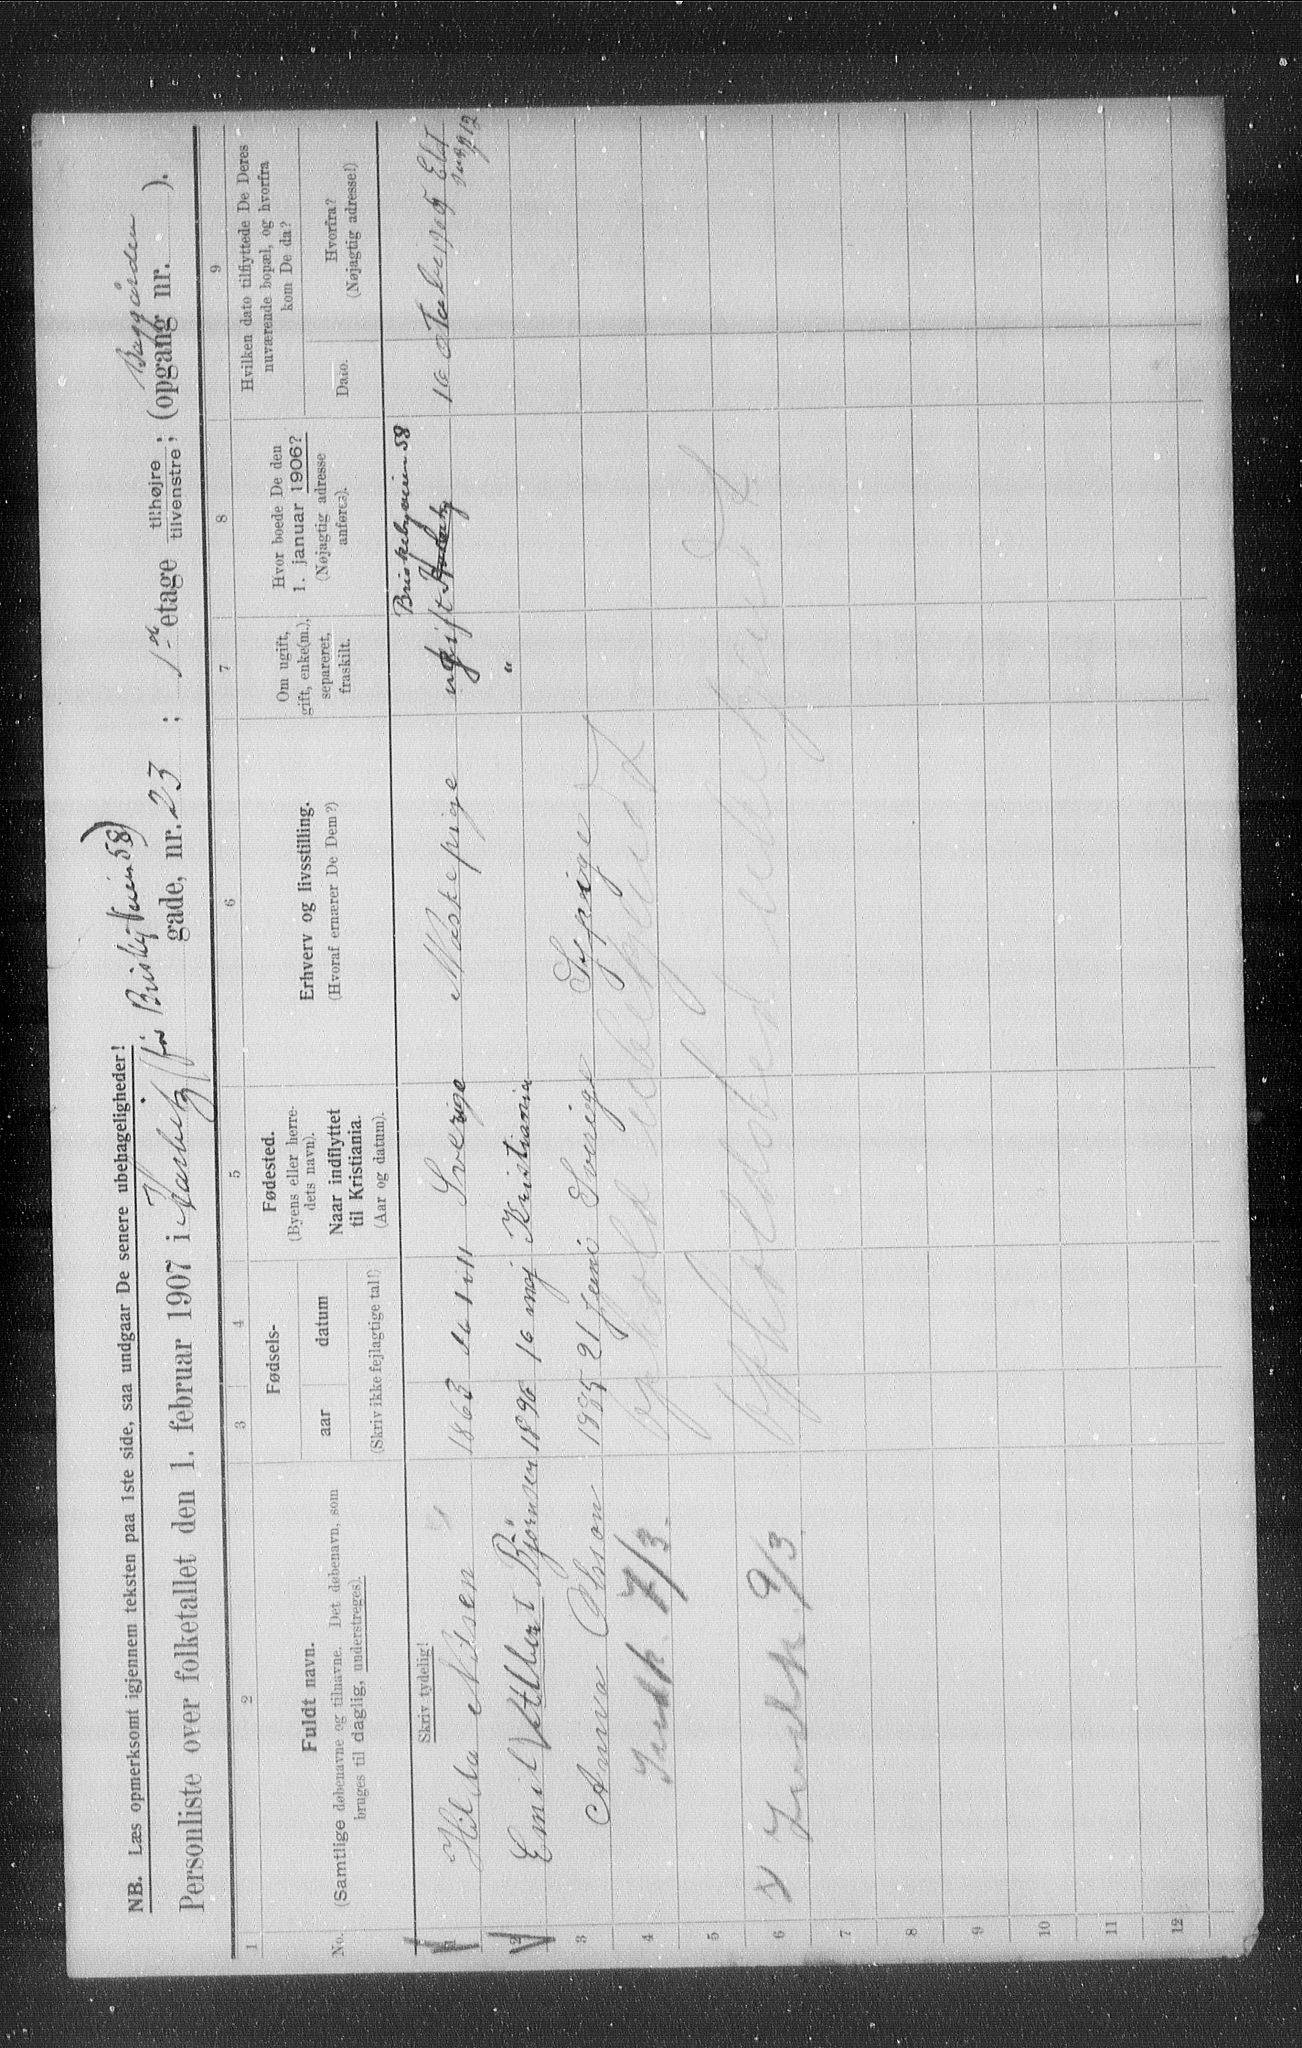 NB. Læs opmerksomt igjennem teksten paa 1ste side, saa undgaar De senere ubehageligheder!
(før Briskebyveien 58) Baggården
Personliste over folketallet den 1. februar 1907 i gade, nr. 23 ; 1ste etage tilhøjre ; tilvenstre ; (opgang nr. ).
1 2 3 4 5 6 7 8 9
No.
Fuldt navn.
(Samtlige døbenavne og tilnavne. Det døbenavn, som
bruges til daglig, understreges).
Fødsels-
aar datum
(Skriv ikke fejlagtige tal!)
Fødested.
(Byens eller herre-
dets navn).
Naar indflyttet
til Kristiania.
(Aar og datum).
Erhverv og livsstilling.
(Hvoraf ernærer De Dem?)
Om ugift,
gift, enke(m.),
separeret,
fraskilt.
Hvor boede De den
1. januar 1906?
(Nøjagtig adresse
anføres).
Hvilken dato tilflyttede De Deres
nuværende bopæl, og hvorfra
kom De da?
Dato.
Hvorfra?
(Nøjagtig adresse!)
Skriv tydelig!
Briskebyveien 58
1 Hilda Nilsen 1863 Sverige Vaskepige ugift 16 1905
2 Emil Albert Björnsen 1896 16 maj Kristiania "
3 Anna Olsson 1885 21 Juni Sverige Sypige
4 7/3. opholdssted ubekjendt
5
6 9/3 opholdssted ubekjendt
7
8
9
10
11
12